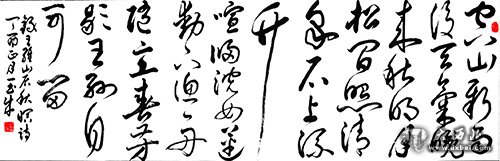 空山新雨
後天气晚
来秋明月
松间照清
泉石上流
竹
喧归浣女莲
动下渔舟
随意春芳
歇王孙自
可留
录王维山居秋暝诗
丁酉正月